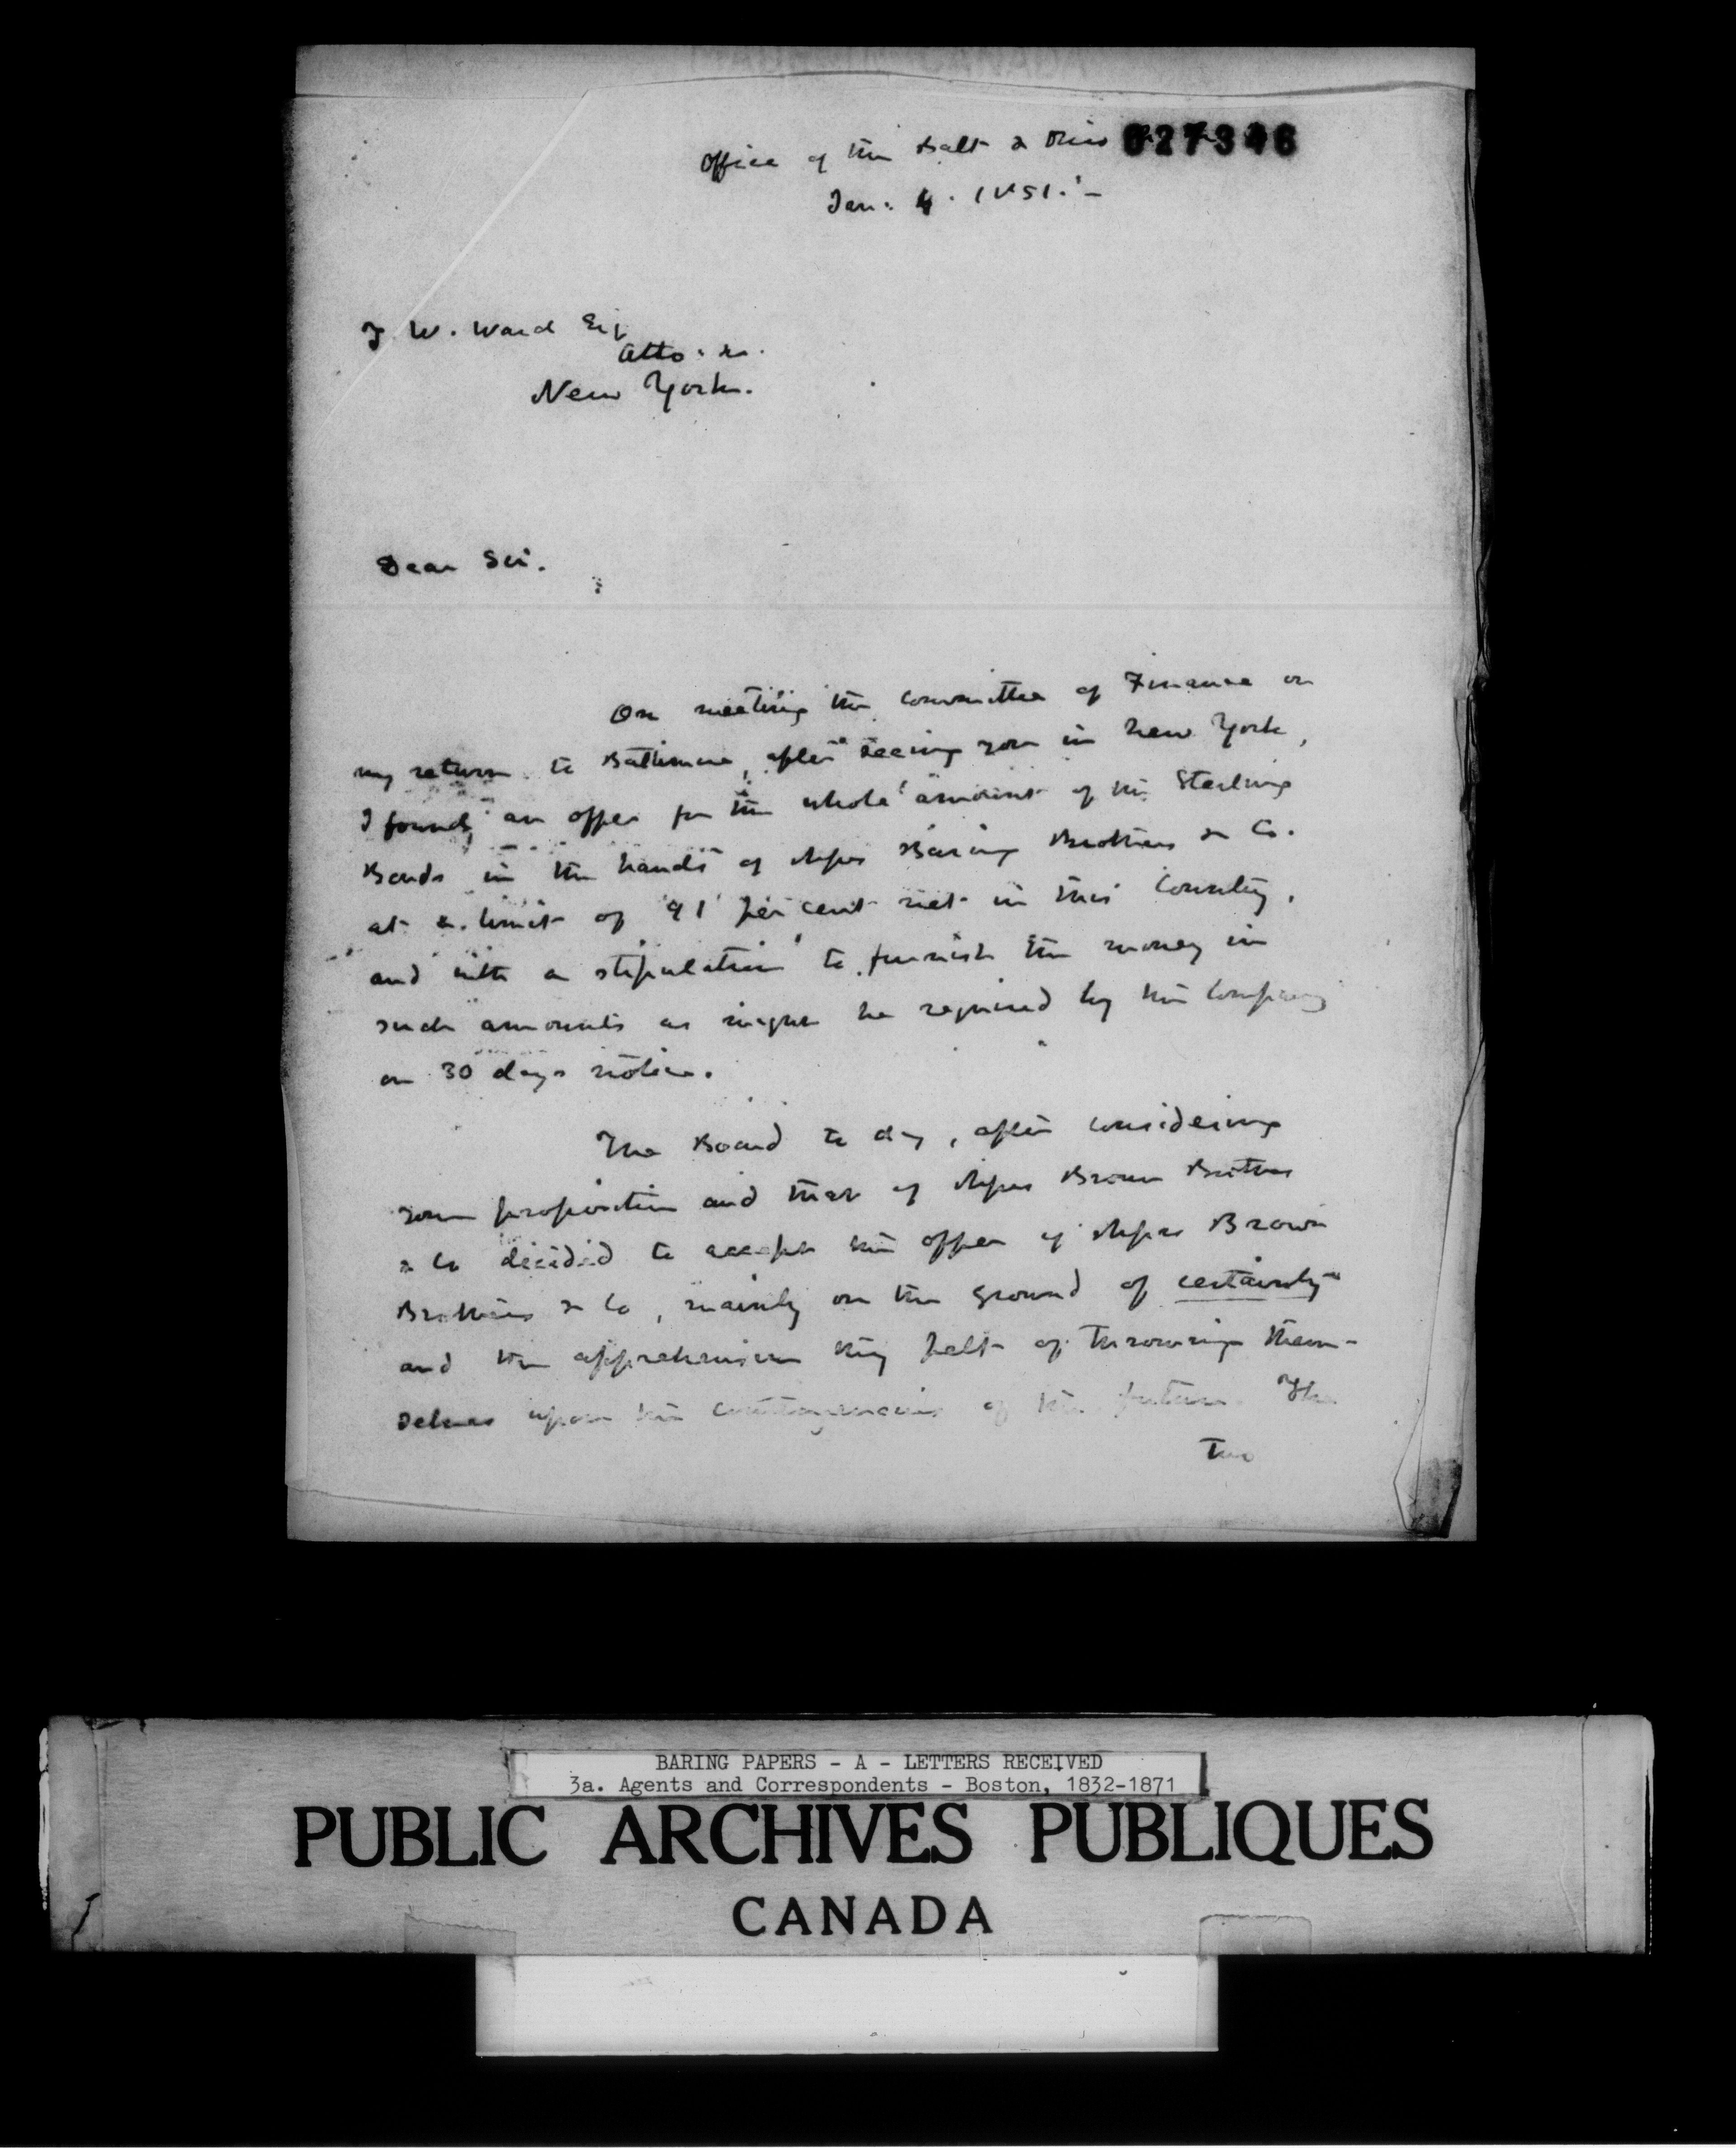 Office of the Balt & Ohio
027346
Jan: 4. 1851.-
T. W. Ward Esq
Atto. &c.
New York.
Dear Sir.
On meeting the Committee of Finance on
my return to Baltimore, after seeing you in New York,
I found, an offer for the whole amount of the Sterling
Bonds in the hands of Messrs Baring Brothers & Co.
at a limit of 91 per cent net in this Country,
and with a stipulation to furnish the money in
such amounts as might be required by the Company
on 30 days notice.
The Board to day, after considering
your proposition and that of Messrs Brown Brothers
& Co decided to accept the offer of Messrs Brown
Brothers & Co, mainly on the ground of certainty
and the apprehension they felt of throwing them-
selves upon the contingencies of the future. The
Two
BARING PAPERS - A - LETTERS RECEIVED
3a. Agents and Correspondents - Boston, 1832-1871
PUBLIC ARCHIVES PUBLIQUES
CANADA